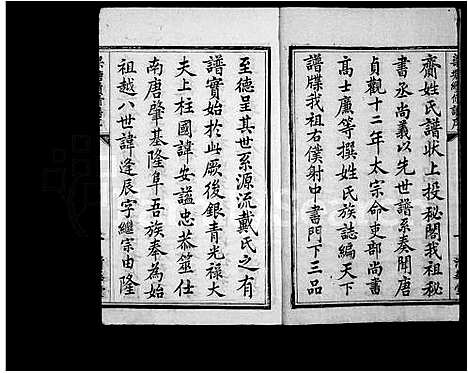 齋姓氏譜狀上投秘閣我祖秘
書丞尚義以先世譜系奏聞唐
貞觀十二年太宗命吏部尚書
高士廉等撰姓氏族誌編天下
譜牒我祖右僕射中書門下三品
至德呈其世系源流戴氏之有
譜實始於此厥後銀青光祿大
夫上柱國諱安謚忠恭筮仕
南唐肇基隆阜吾族奉為始
祖越八世諱逢辰字繼宗由隆